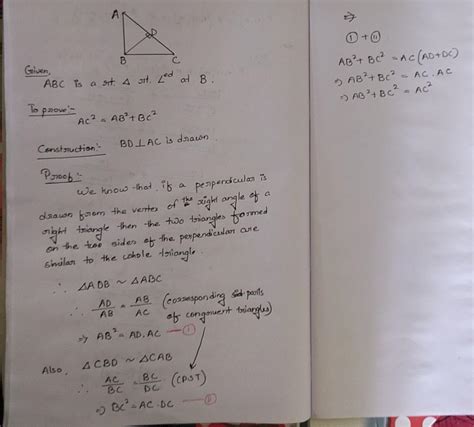 A
D
B C
Given,
ABC is a rt. Δ rt. ∠ed at B.
To prove:-
AC² = AB² + BC²
Construction:- BD⊥AC is drawn.
Proof:-
We know that if a perpendicular is
drawn from the vertex of the right angle of a
right triangle then the two triangles formed
on the two sides of the perpendicular are
similar to the whole triangle.
∴ ΔADB ~ ΔABC
∴ AD/AB = AB/AC (corresponding parts
of congruent triangles)
⇒ AB² = AD.AC — (i)
Also, ΔCBD ~ ΔCAB
∴ AC/BC = BC/DC (CPST)
⇒ BC² = AC.DC — (ii)
⇒
(i) + (ii)
AB² + BC² = AC(AD+DC)
⇒ AB² + BC² = AC . AC
⇒ AB² + BC² = AC²